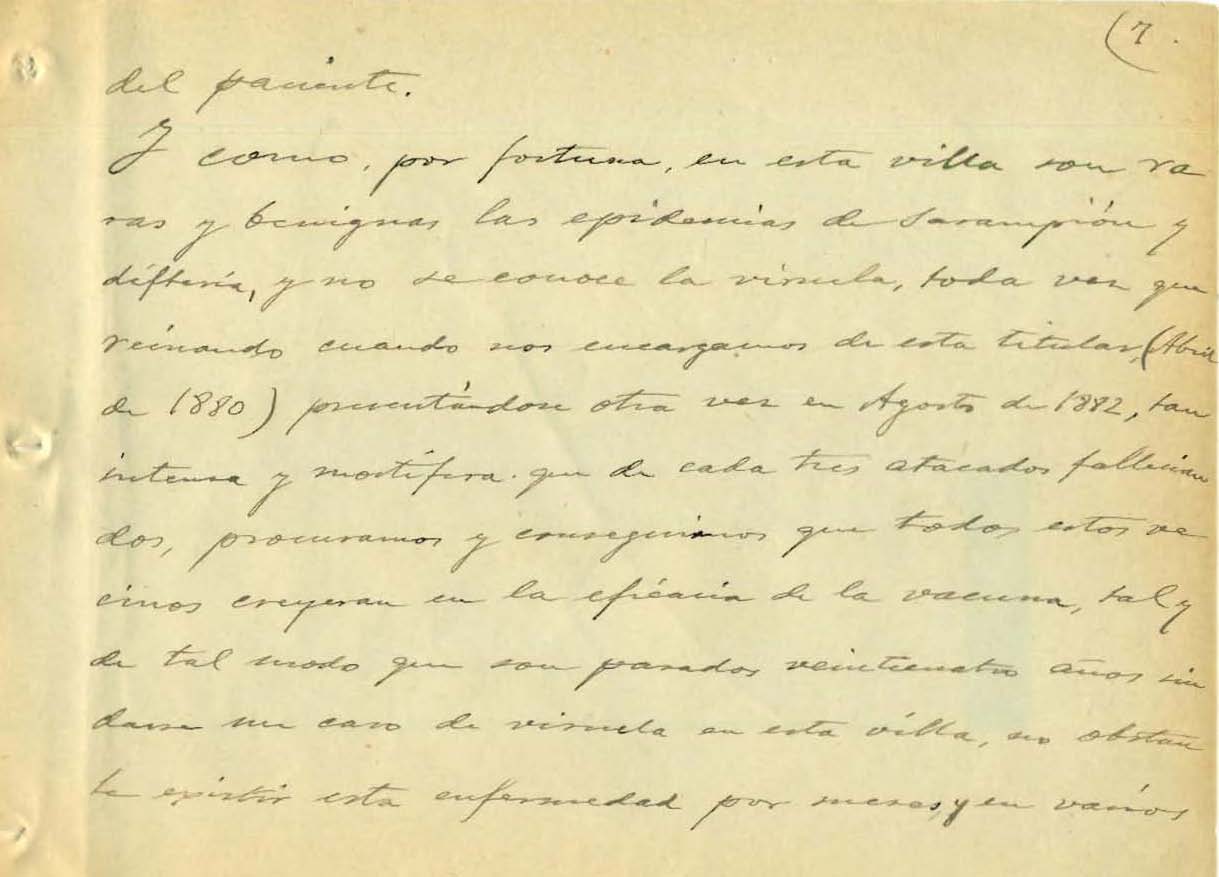 (7.
del paciente.
Y como, por fortuna, en esta villa son ra
ras y benignas las epidemias de Sarampión y
difteria, y no se conoce la viruela, toda vez que
reinando cuando nos encargamos de esta titular, (Abril
de 1880) presentándose otra vez en Agosto de 1882, tan
intensa y mortífera que de cada tres atacados fallecian
dos, procuramos y conseguimos que todos estos ve
cinos creyeran en la eficacia de la vacuna, tal y
de tal modo que son pasados veinticuatro años sin
darse un caso de viruela en esta villa, no obstan
te existir esta enfermedad por meses, y en varios